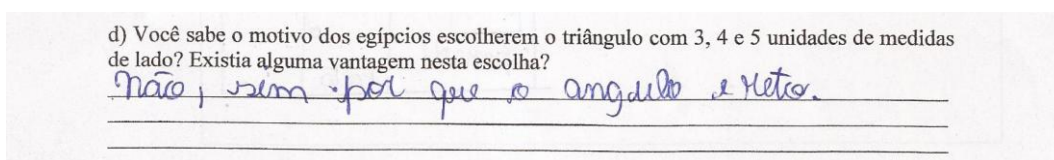 d) Você sabe o motivo dos egípcios escolherem o triângulo com 3, 4 e 5 unidades de medidas
de lado? Existia alguma vantagem nesta escolha?
não, sim por que o angulo e reto.